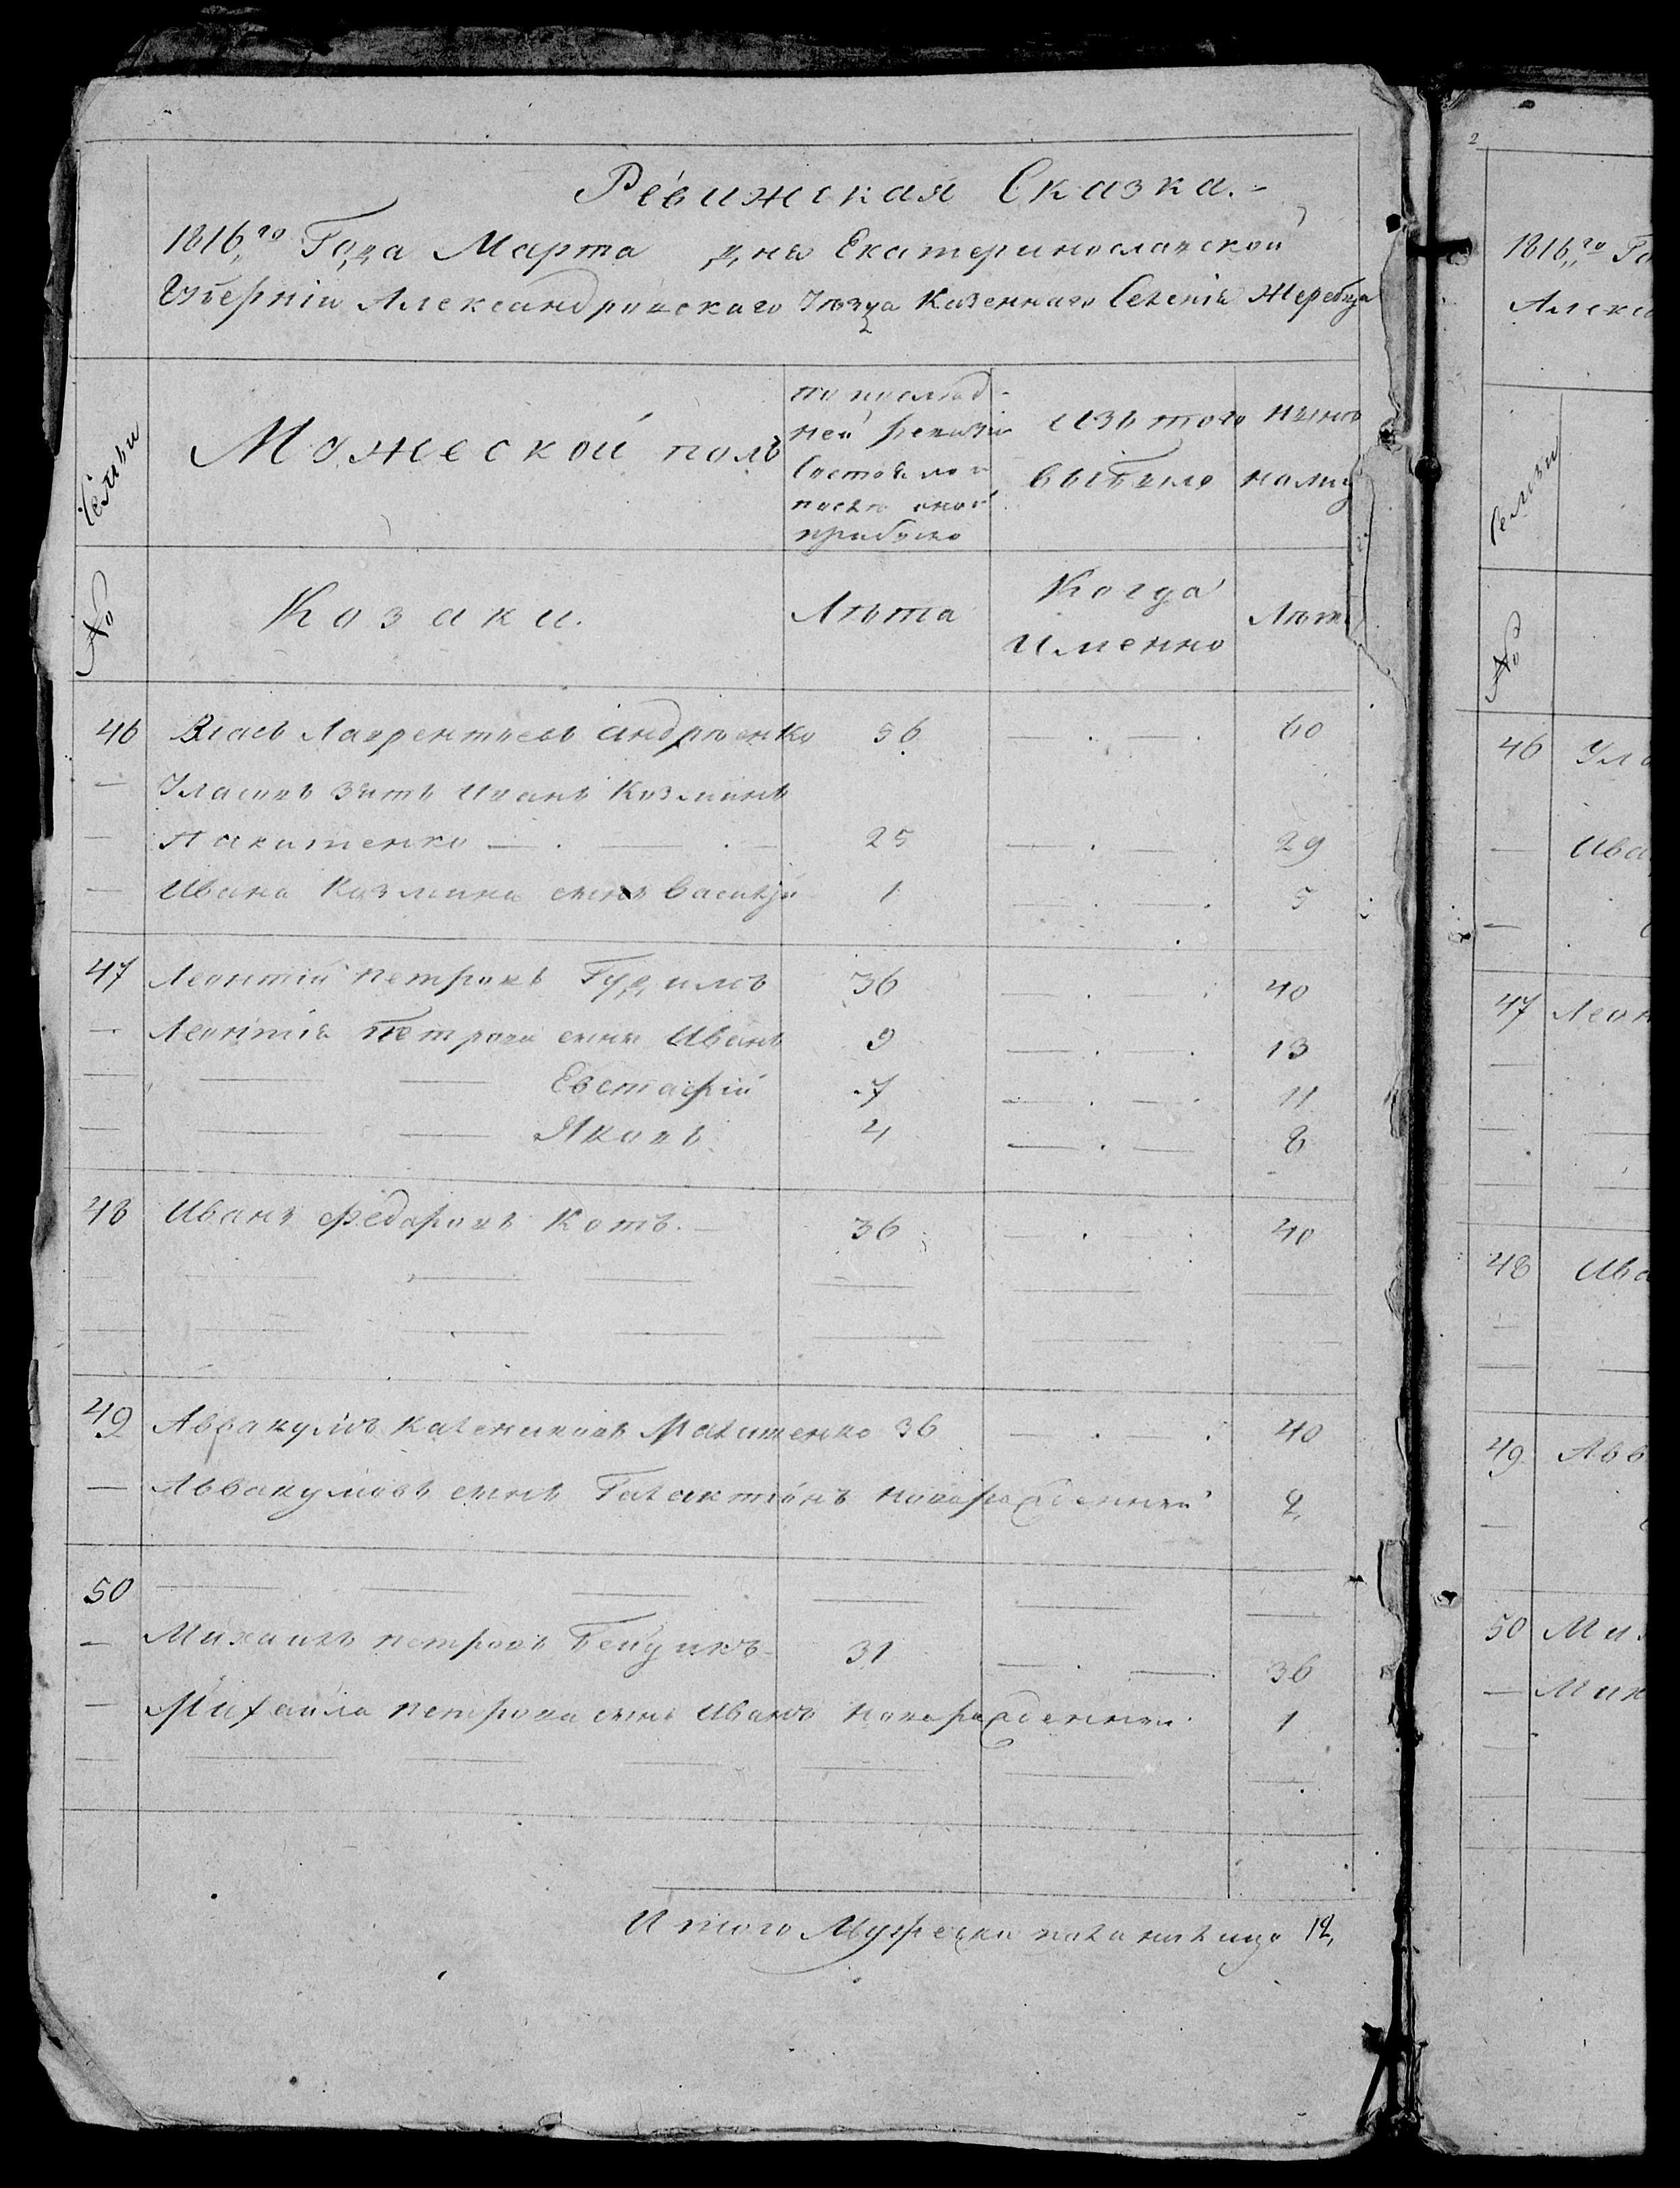 Ревижская Сказка.
1816,,го Года Марта дня Екатеринославской
Губерніи Александровскаго Уѣзда Казеннаго Селенія Жеребца
Семьи
Можеской полъ
по послѣд-
ней ревизіи
Состояло и
послѣ оной
прибыло
изъ того
выбыло
нынѣ
налиц
№
Козаки.
Лѣта
Когда
именно
Лѣт
46 Власъ Лаврентьевъ Андрюенко 56 60
Уласовъ зять Иванъ Козминъ
25 29
Ивана Козмина сынъ Василій 1 5
47 Леонтій Петровъ Гудимъ 36 40
Леонтія Петрова сыны Иванъ 9 13
Евстафій 7 11
Яковъ 4 8
48 Иванъ Федоровъ Котъ. 36 40
49 Аввакумъ Калениковъ 36 40
Аввакумовъ сынъ Галактіонъ новорожденный 2
50
Михаилъ Петровъ 31 36
Михаила Петрова сынъ Иванъ новорожденный 1
Итого Мужеска пола налицо 12,
2
1816,,го Го
Алекс
Семьи
№
46 Ула
Ива
47 Леон
48 Ива
49 Авв
50 Мих
Мих